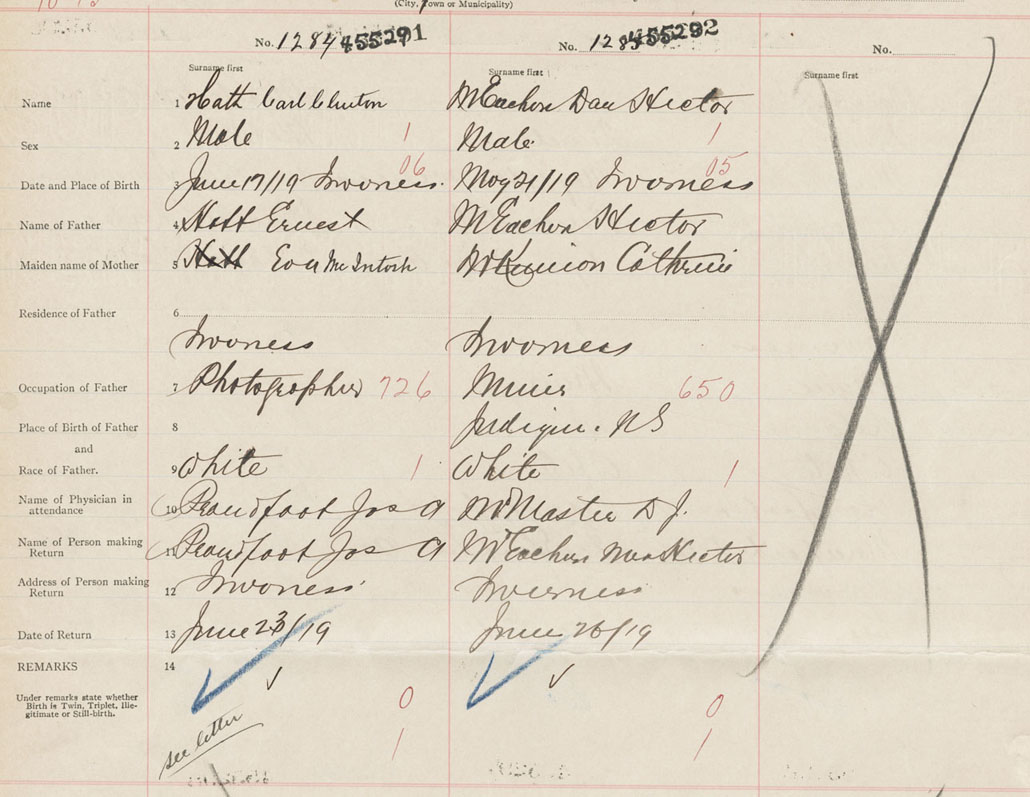 (City, Town or Municipality)
No. 1284 455291 No. 1285 455292 No.
Surname first Surname first Surname first
Name 1 Hatt Carl Clinton McEachern Dan Hector
Sex 2 Male 1 Male 1
06 05
Date and Place of Birth 3 June 17/19 Inverness. May 21/19 Inverness
Name of Father 4 Hatt Ernest McEachern Hector
Maiden name of Mother 5 Hatt Eva McIntosh McKinnon Catherine
Residence of Father 6
Inverness Inverness
Occupation of Father 7 Photographer 726 Miner 650
Place of Birth of Father 8 Judique. NS
and
Race of Father. 9 White 1 White 1
Name of Physician in
attendance 10 Proudfoot Jos A McMaster D J.
Name of Person making
Return 11 Proudfoot Jos A McEachern Mrs Hector
Address of Person making
Return 12 Inverness Inverness
Date of Return 13 June 23/19 June 26/19
REMARKS 14
Under remarks state whether
Birth is Twin, Triplet, Ille-
gitimate or Still-birth.
0 0
see letter 1 1